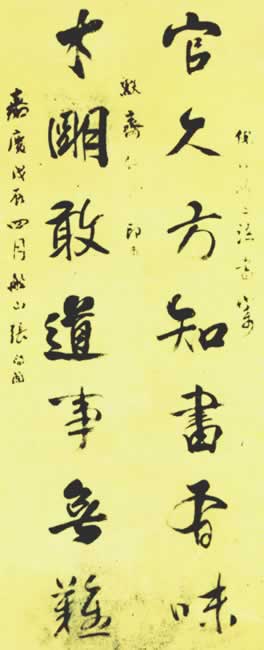 官久方知書有味
默齋
才朙敢道事無難
嘉慶戊辰四月船山張問陶